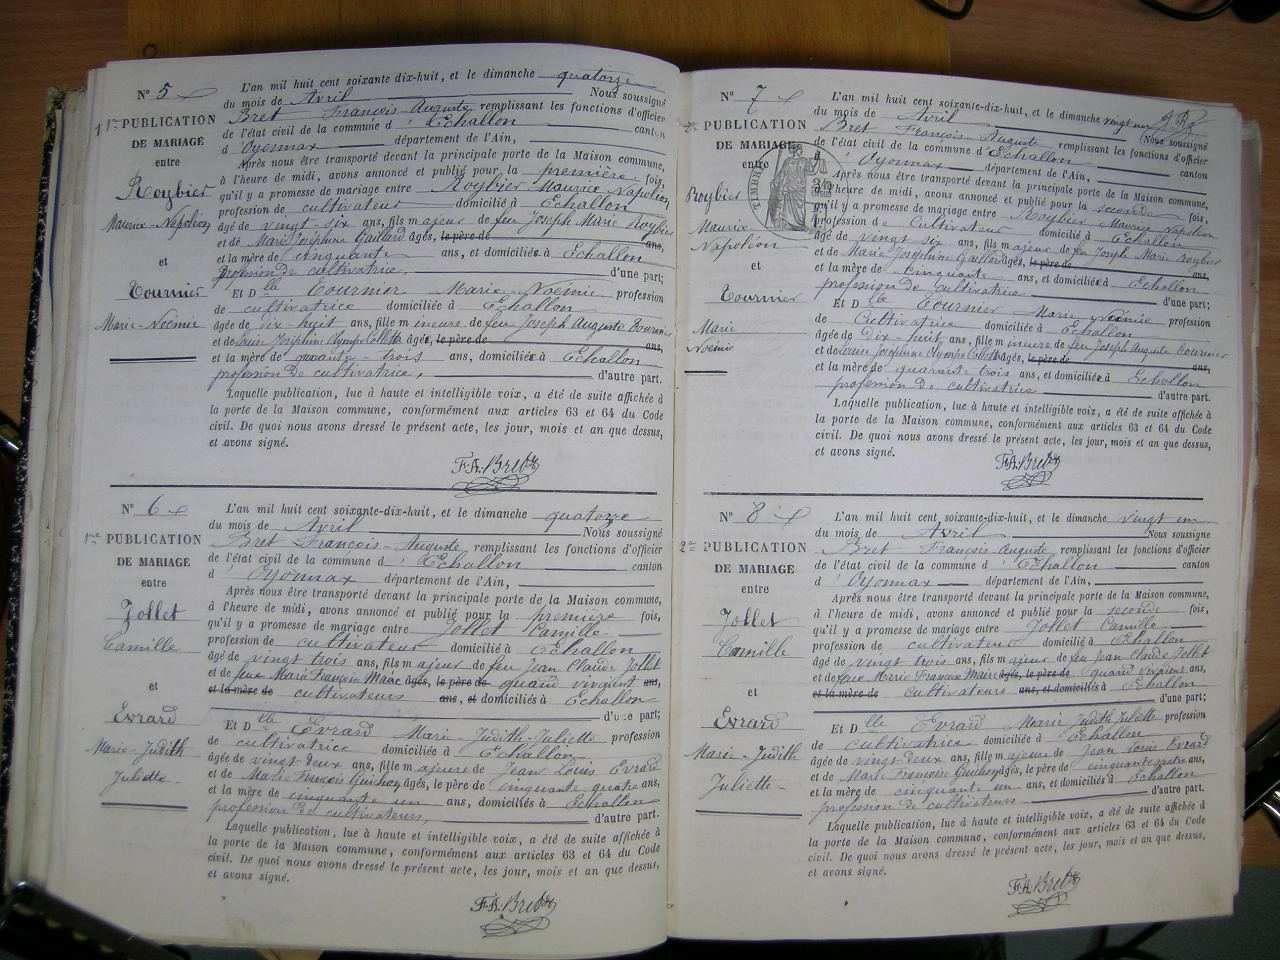 N° 5
1re PUBLICATION
DE MARIAGE
entre
Roybier
Maurice Napoléon
et
Tournier
Marie-Noémie
L'an mil huit cent soixante dix-huit, et le dimanche quatorze
du mois de Avril Nous soussigné
Bret François Auguste remplissant les fonctions d'officier
de l'état civil de la commune d'Echallon canton
d'Oyonnax département de l'Ain,
Après nous être transporté devant la principale porte de la Maison commune,
à l'heure de midi, avons annoncé et publié pour la première fois,
qu'il y a promesse de mariage entre Roybier Maurice Napoléon
profession de cultivateur domicilié à Echallon
âgé de vingt-six ans, fils majeur de feu Joseph Marie Roybier
et de Marie Joséphine Gaillard âgés, le père de ans,
et la mère de cinquante ans, et domiciliés à Echallon
profession de cultivatrice. d'une part;
Et Dlle Tournier Marie-Noémie profession
de cultivatrice domiciliée à Echallon
âgée de dix-huit ans, fille mineure de feu Joseph Auguste Tournier
et de Louise Joséphine Olympe Collet âgés, le père de ans,
et la mère de quarante-trois ans, domiciliés à Echallon
profession de cultivatrice, d'autre part.
Laquelle publication, lue à haute et intelligible voix, a été de suite affichée à
la porte de la Maison commune, conformément aux articles 63 et 64 du Code
civil. De quoi nous avons dressé le présent acte, les jour, mois et an que dessus,
et avons signé.
F.A. Bret
N° 6
1re PUBLICATION
DE MARIAGE
entre
Jollet
Camille
et
Evrard
Marie-Judith
Juliette
L'an mil huit cent soixante-dix-huit, et le dimanche quatorze
du mois de Avril Nous soussigné
Bret François-Auguste remplissant les fonctions d'officier
de l'état civil de la commune d'Echallon canton
d'Oyonnax département de l'Ain,
Après nous être transporté devant la principale porte de la Maison commune,
à l'heure de midi, avons annoncé et publié pour la première fois,
qu'il y a promesse de mariage entre Jollet Camille
profession de cultivateur domicilié à Echallon
âgé de vingt trois ans, fils majeur de feu Jean Claude Jollet
et de feue Marie Françoise âgés, le père de quand vivaient ans,
et la mère de cultivateurs ans, et domiciliés à Echallon
d'une part;
Et Dlle Evrard Marie-Judith-Juliette profession
de cultivatrice domiciliée à Echallon
âgée de vingt-deux ans, fille majeure de Jean Louis Evrard
et de Marie Françoise âgés, le père de cinquante quatre ans,
et la mère de cinquante un ans, domiciliés à Echallon
profession de cultivateurs, d'autre part.
Laquelle publication, lue à haute et intelligible voix, a été de suite affichée à
la porte de la Maison commune, conformément aux articles 63 et 64 du Code
civil. De quoi nous avons dressé le présent acte, les jour, mois et an que dessus,
et avons signé.
F.A. Bret
N° 7
2e PUBLICATION
DE MARIAGE
entre
Roybier
Maurice
Napoléon
et
Tournier
Marie
Noémie
TIMBRE
L'an mil huit cent soixante-dix-huit, et le dimanche vingt un
du mois de Avril Nous soussigné
Bret François-Auguste remplissant les fonctions d'officier
de l'état civil de la commune d'Echallon canton
d'Oyonnax département de l'Ain,
Après nous être transporté devant la principale porte de la Maison commune,
à l'heure de midi, avons annoncé et publié pour la seconde fois,
qu'il y a promesse de mariage entre Roybier Maurice Napoléon
profession de Cultivateur domicilié à Echallon
âgé de vingt six ans, fils majeur de feu Joseph Marie Roybier
et de Marie Joséphine Gaillard âgés, le père de ans,
et la mère de Cinquante ans, et domiciliés à Echallon
profession de cultivatrice d'une part;
Et Dlle Tournier Marie Noémie profession
de Cultivatrice domiciliée à Echallon
âgée de Dix-huit ans, fille mineure de feu Joseph Auguste Tournier
et de Louise Joséphine Olympe Collet âgés, le père de ans,
et la mère de quarante trois ans, et domiciliés à Echallon
profession de cultivatrice d'autre part.
Laquelle publication, lue à haute et intelligible voix, a été de suite affichée à
la porte de la Maison commune, conformément aux articles 63 et 64 du Code
civil. De quoi nous avons dressé le présent acte, les jour, mois et an que dessus,
et avons signé.
F.A. Bret
N° 8
2e PUBLICATION
DE MARIAGE
entre
Jollet
Camille
et
Evrard
Marie-Judith
Juliette
L'an mil huit cent soixante-dix-huit, et le dimanche vingt un
du mois de Avril Nous soussigné
Bret François Auguste remplissant les fonctions d'officier
de l'état civil de la commune d'Echallon canton
d'Oyonnax département de l'Ain,
Après nous être transporté devant la principale porte de la Maison commune,
à l'heure de midi, avons annoncé et publié pour la seconde fois,
qu'il y a promesse de mariage entre Jollet Camille
profession de cultivateur domicilié à Echallon
âgé de vingt trois ans, fils majeur de feu Jean Claude Jollet
et de feue Marie Françoise âgés, le père de quand vivaient ans,
et la mère de cultivateurs ans, et domiciliés à Echallon
d'une part;
Et Dlle Evrard Marie Judith Juliette profession
de cultivatrice domiciliée à Echallon
âgée de vingt-deux ans, fille majeure de Jean Louis Evrard
et de Marie Françoise âgés, le père de cinquante quatre ans,
et la mère de cinquante un ans, et domiciliés à Echallon
profession de cultivateurs d'autre part.
Laquelle publication, lue à haute et intelligible voix, a été de suite affichée à
la porte de la Maison commune, conformément aux articles 63 et 64 du Code
civil. De quoi nous avons dressé le présent acte, les jour, mois et an que dessus,
et avons signé.
F.A. Bret